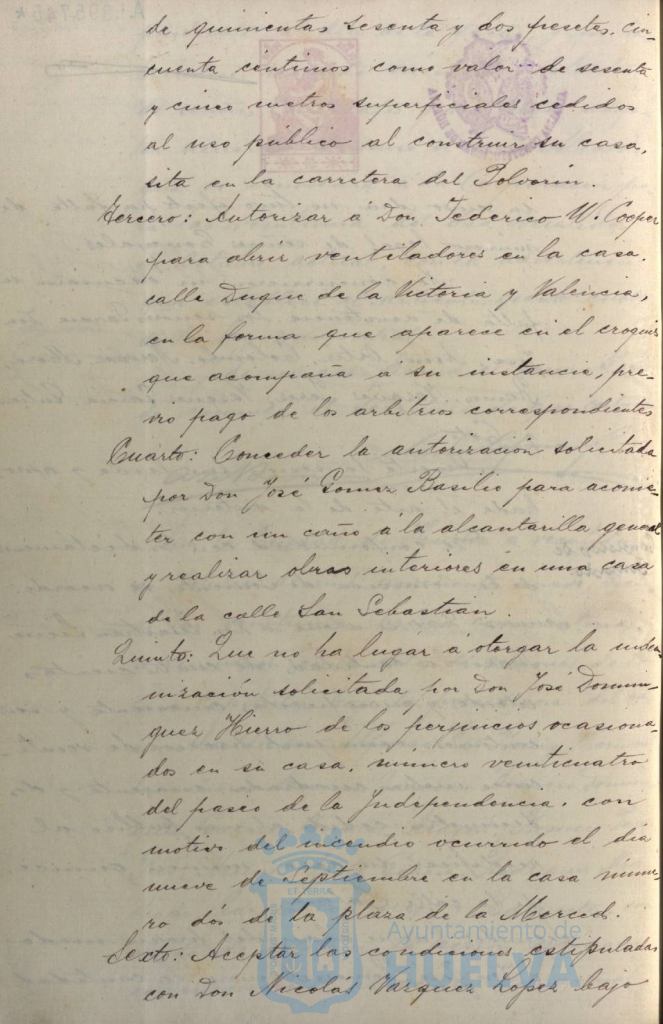 de quinientas sesenta y dos pesetas, cin-
cuenta centimos como valor de sesenta
y cinco metros superficiales cedidos
al uso público al construir su casa,
sita en la carretera del Polvorin.
Tercero: Autorizar á Don Federico W. Cooper
para abrir ventiladores en la casa,
calle Duque de la Victoria y Valencia,
en la forma que aparece en el croquis
que acompaña á su instancia, pre-
vio pago de los arbitrios correspondientes
Cuarto: Conceder la autorización solicitada
por Don José Gomez Basilio para acome-
ter con un caño á la alcantarilla general
y realizar obras interiores en una casa
de la calle San Sebastian.
Quinto: Que no ha lugar á otorgar la indem-
nización solicitada por Don José Domin-
guez Hierro de los perjuicios ocasiona-
dos en su casa, número veinticuatro
del paseo de la Independencia, con
motivo del incendio ocurrido el dia
nueve de Septiembre en la casa núme-
ro dós de la plaza de la Merced.
Sexto: Aceptar las condiciones estipuladas
con Don Nicolás Vazquez Lopez bajo
Ayuntamiento de
HUELVA